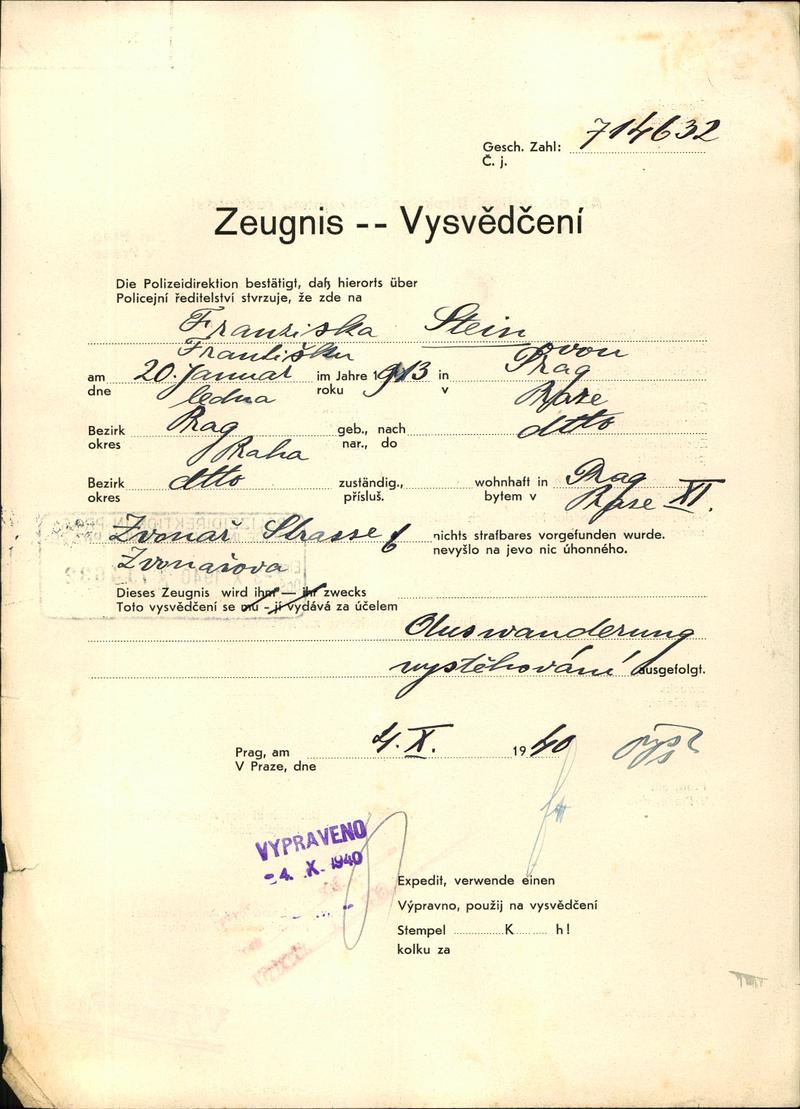 Gesch. Zahl: 714632
Č. j.
Zeugnis -- Vysvědčení
Die Polizeidirektion bestätigt, daß hierorts über
Policejní ředitelství stvrzuje, že zde na
Franziska Stein
Františku von
am 20. Januar im Jahre 1913 in Prag
dne ledna roku v Praze
Bezirk Prag geb., nach dtto
okres Praha nar., do
Bezirk dtto zuständig., wohnhaft in Prag
okres přísluš. bytem v Praze XI.
Zvonař Strasse 6 nichts strafbares vorgefunden wurde.
Zvonařova nevyšlo na jevo nic úhonného.
Dieses Zeugnis wird ihm — ihr zwecks
Toto vysvědčení se mu - jí vydává za účelem
Auswanderung
vystěhování ausgefolgt.
Prag, am 4. X. 1940
V Praze, dne
VYPRAVENO
-4. X. 1940
Expedit, verwende einen
Výpravno, použij na vysvědčení
Stempel K h!
kolku za